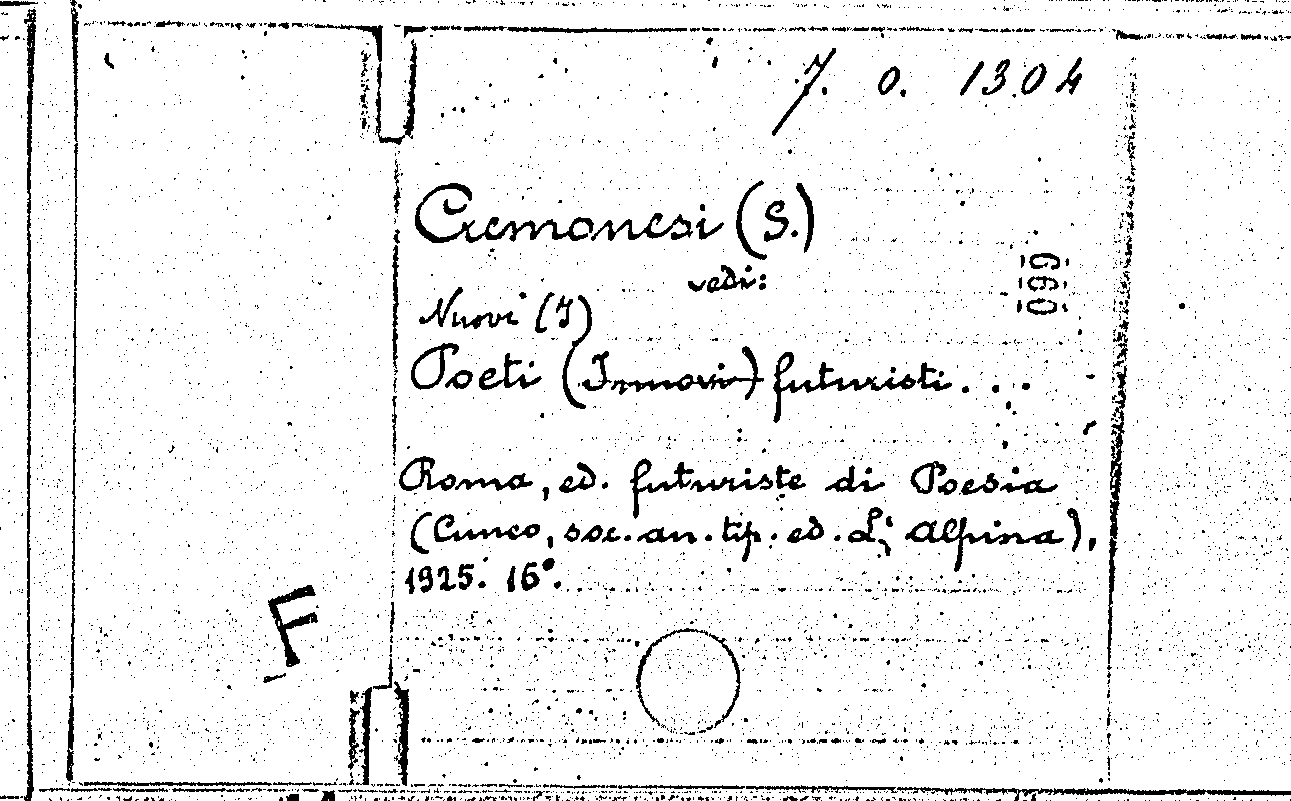 7. o. 1304
Cremonesi (S.)
vedi:
Nuovi (I)
Poeti (I nuovi) futuristi . . .
Roma, ed. futuriste di Poesia
(Cuneo, soc. an. tip. ed. L'Alpina),
1925. 16°.
099
F